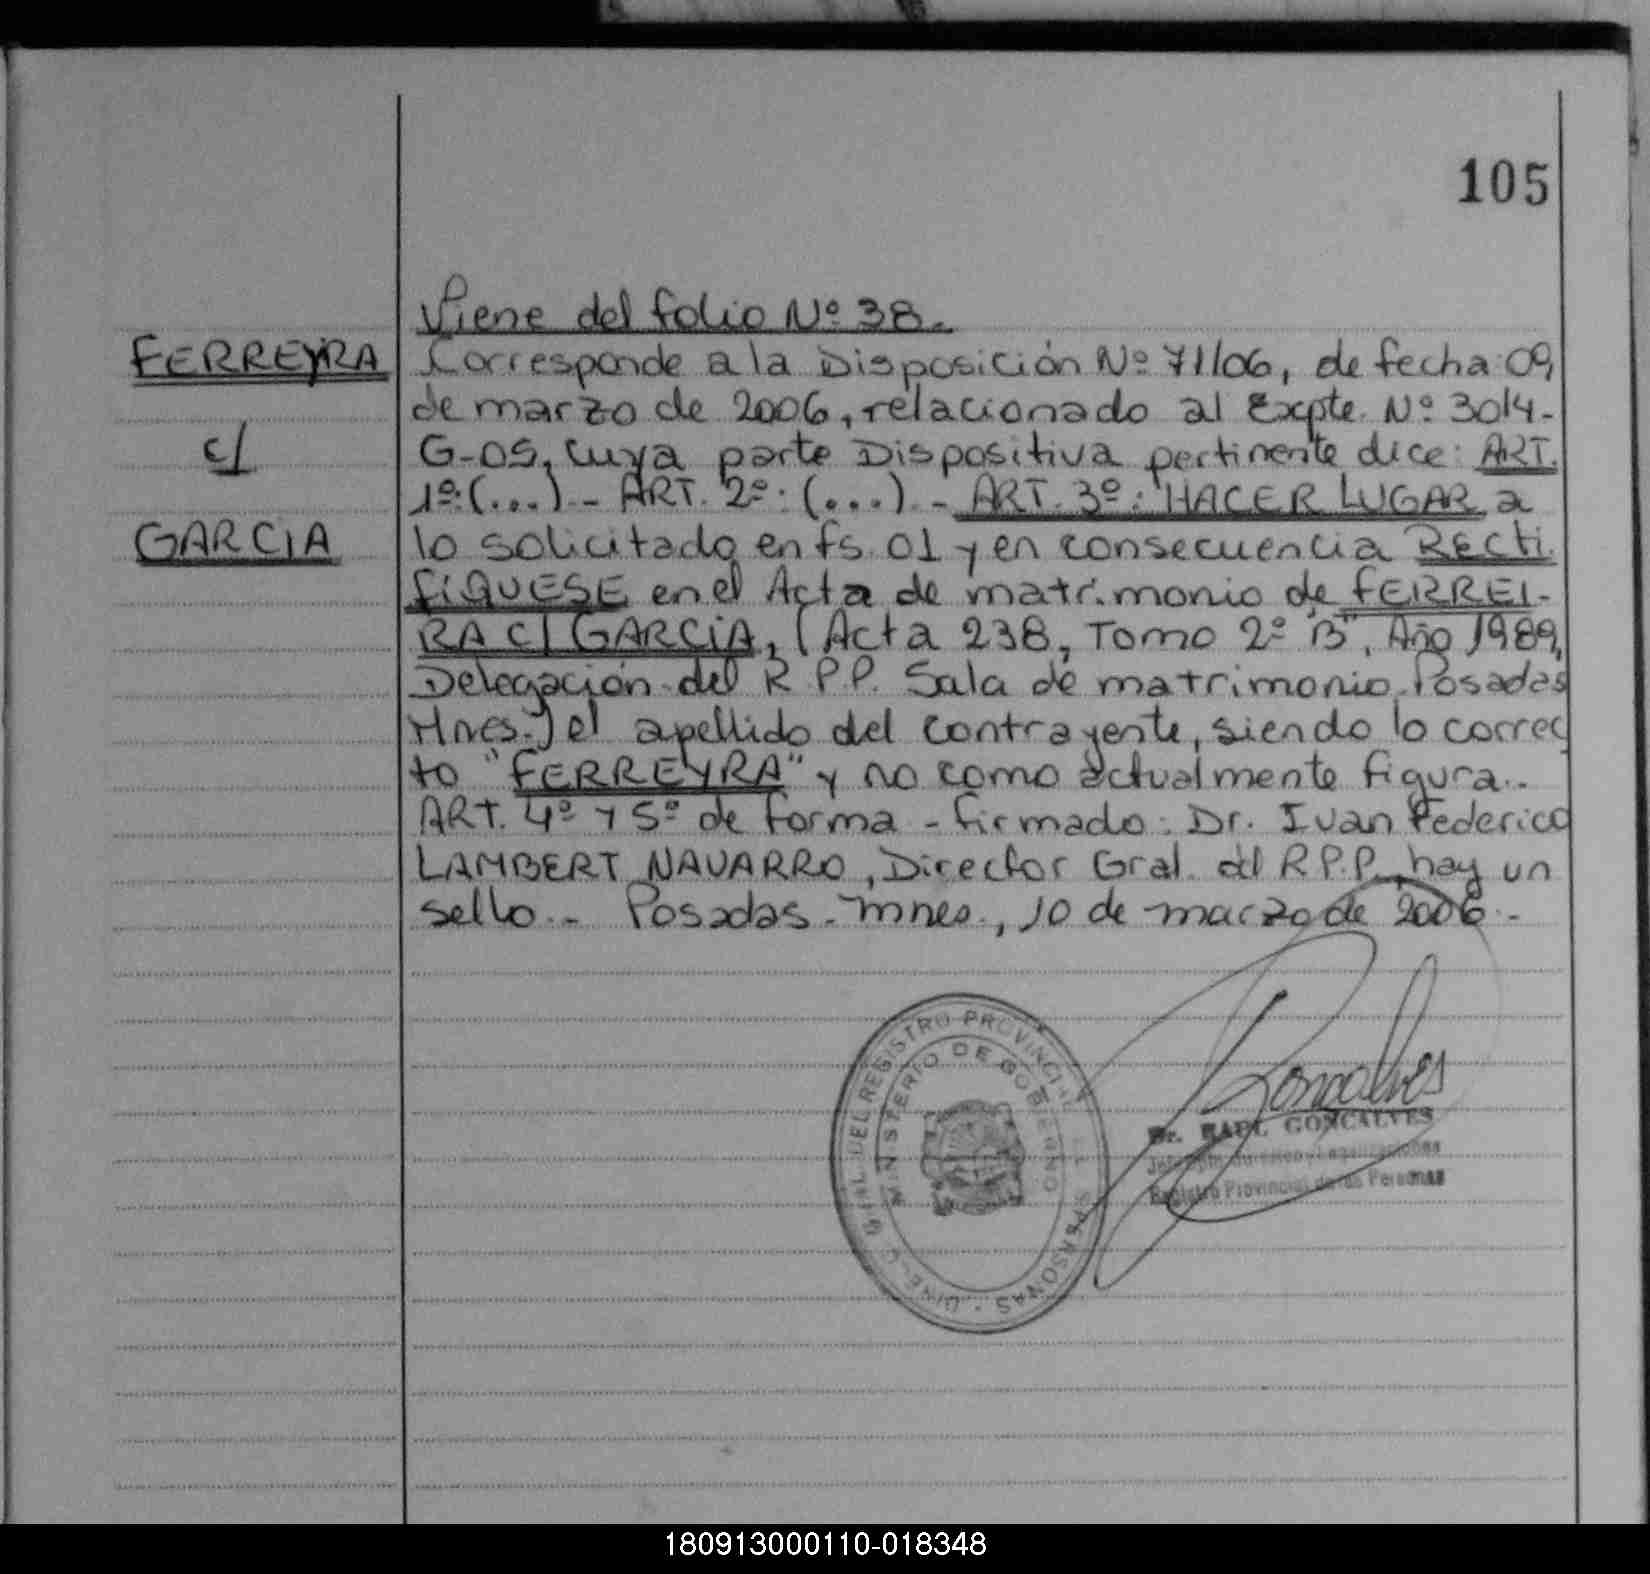 105
Viene del folio Nº 38.
FERREYRA
c/
GARCIA
Corresponde a la Disposición Nº 71/06, de fecha 09,
de marzo de 2006, relacionado al Expte. Nº 3014-
G-05, cuya parte Dispositiva pertinente dice: ART.
1º:(...)- ART. 2º: (...).- ART. 3º: HACER LUGAR a
lo solicitado en fs. 01 y en consecuencia RECTI
FIQUESE en el Acta de matrimonio de FERREI-
RA C/ GARCIA, (Acta 238, Tomo 2º "B", Año 1989,
Delegación del R.P.P. Sala de matrimonio. Posadas
Mnes.) el apellido del contrayente, siendo lo correc
to "FERREYRA" y no como actualmente figura.-
ART. 4º y 5º de forma - firmado: Dr. Ivan Federico
LAMBERT NAVARRO, Director Gral. del R.P.P. hay un
sello.- Posadas - Mnes., 10 de marzo de 2006.-
GRAL. DEL REGISTRO PROVINCIAL PERSONAS
MINISTERIO DE GOBIERNO
Goncalves
Dr. RAUL GONCALVES
Registro Provincial de las Personas
180913000110-018348